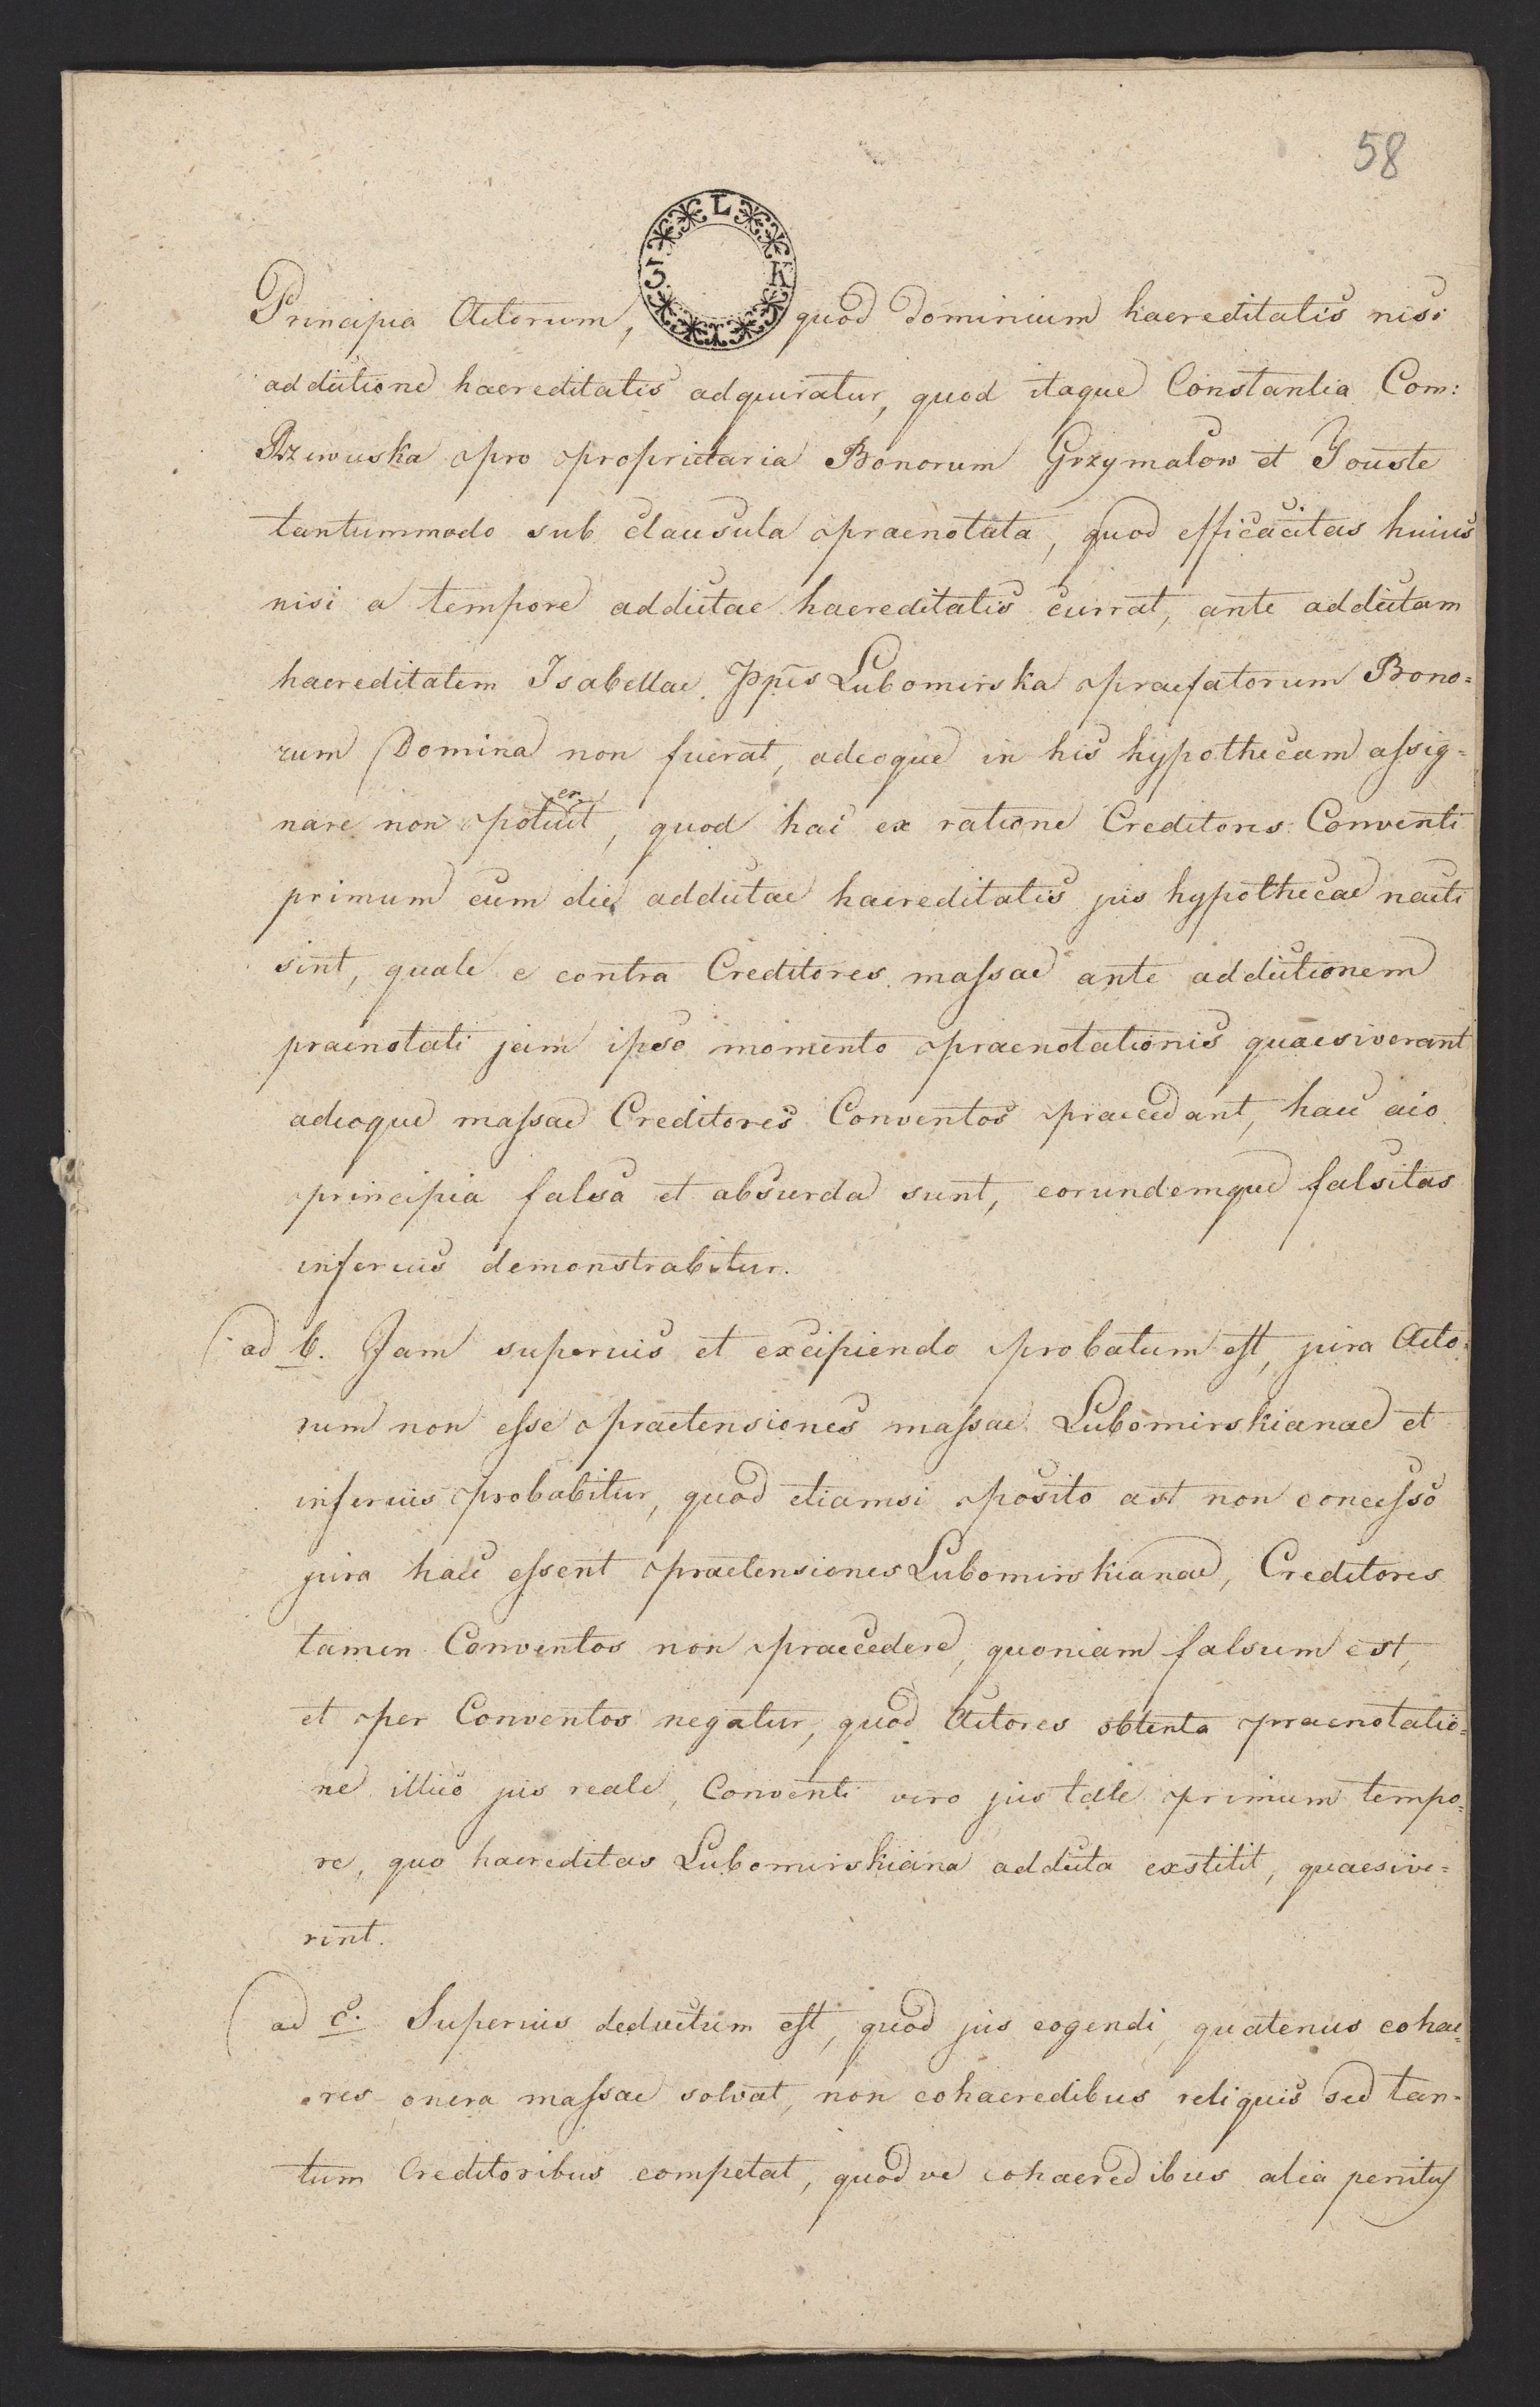 58
L
3 K
I
Principia Actorum, quod dominium haereditatis nisi
additione haereditatis adquiratur, quod itaque Constantia Com:
Rzewuska pro proprietaria Bonorum Grzymalow et Touste
tantummodo sub clausula praenotata, quod efficacitas huius
nisi a tempore additae haereditatis currat, ante additam
haereditatem Isabellae Ppis Lubomirska praefatorum Bono=
rum Domina non fuerat, adeoque in his hypothecam assig=
nare non potuerit, quod hac ex ratione Creditores Conventi
primum cum die additae haereditatis jus hypothecae nacti
sint, quale e contra Creditores massae ante additionem
praenotati jam ipso momento praenotationis quaesiverant
adeoque massae Creditores Conventos praecedant, haec aio
principia falsa et absurda sunt, eorundemque falsitas
inferius demonstrabitur.
ad b. Jam superius et excipiendo probatum est, jura Acto=
rum non esse praetensiones massae Lubomirskianae et
inferius probabitur, quod etiamsi posito ast non concesso
jura haec essent praetensiones Lubomirskianae, Creditores
tamen Conventos non praecedere, quoniam falsum est,
et per Conventos negatur, quod Actores obtenta praenotatio=
ne illico jus reale, Conventi vero jus tale primum tempo=
re, quo haereditas Lubomirskiana addita exstitit, quaesive=
rint.
ad c. Superius deductum est, quod jus cogendi, quatenus cohae=
res onera massae solvat, non cohaeredibus reliquis sed tan=
tum Creditoribus competat, quod ve cohaeredibus alia penitus